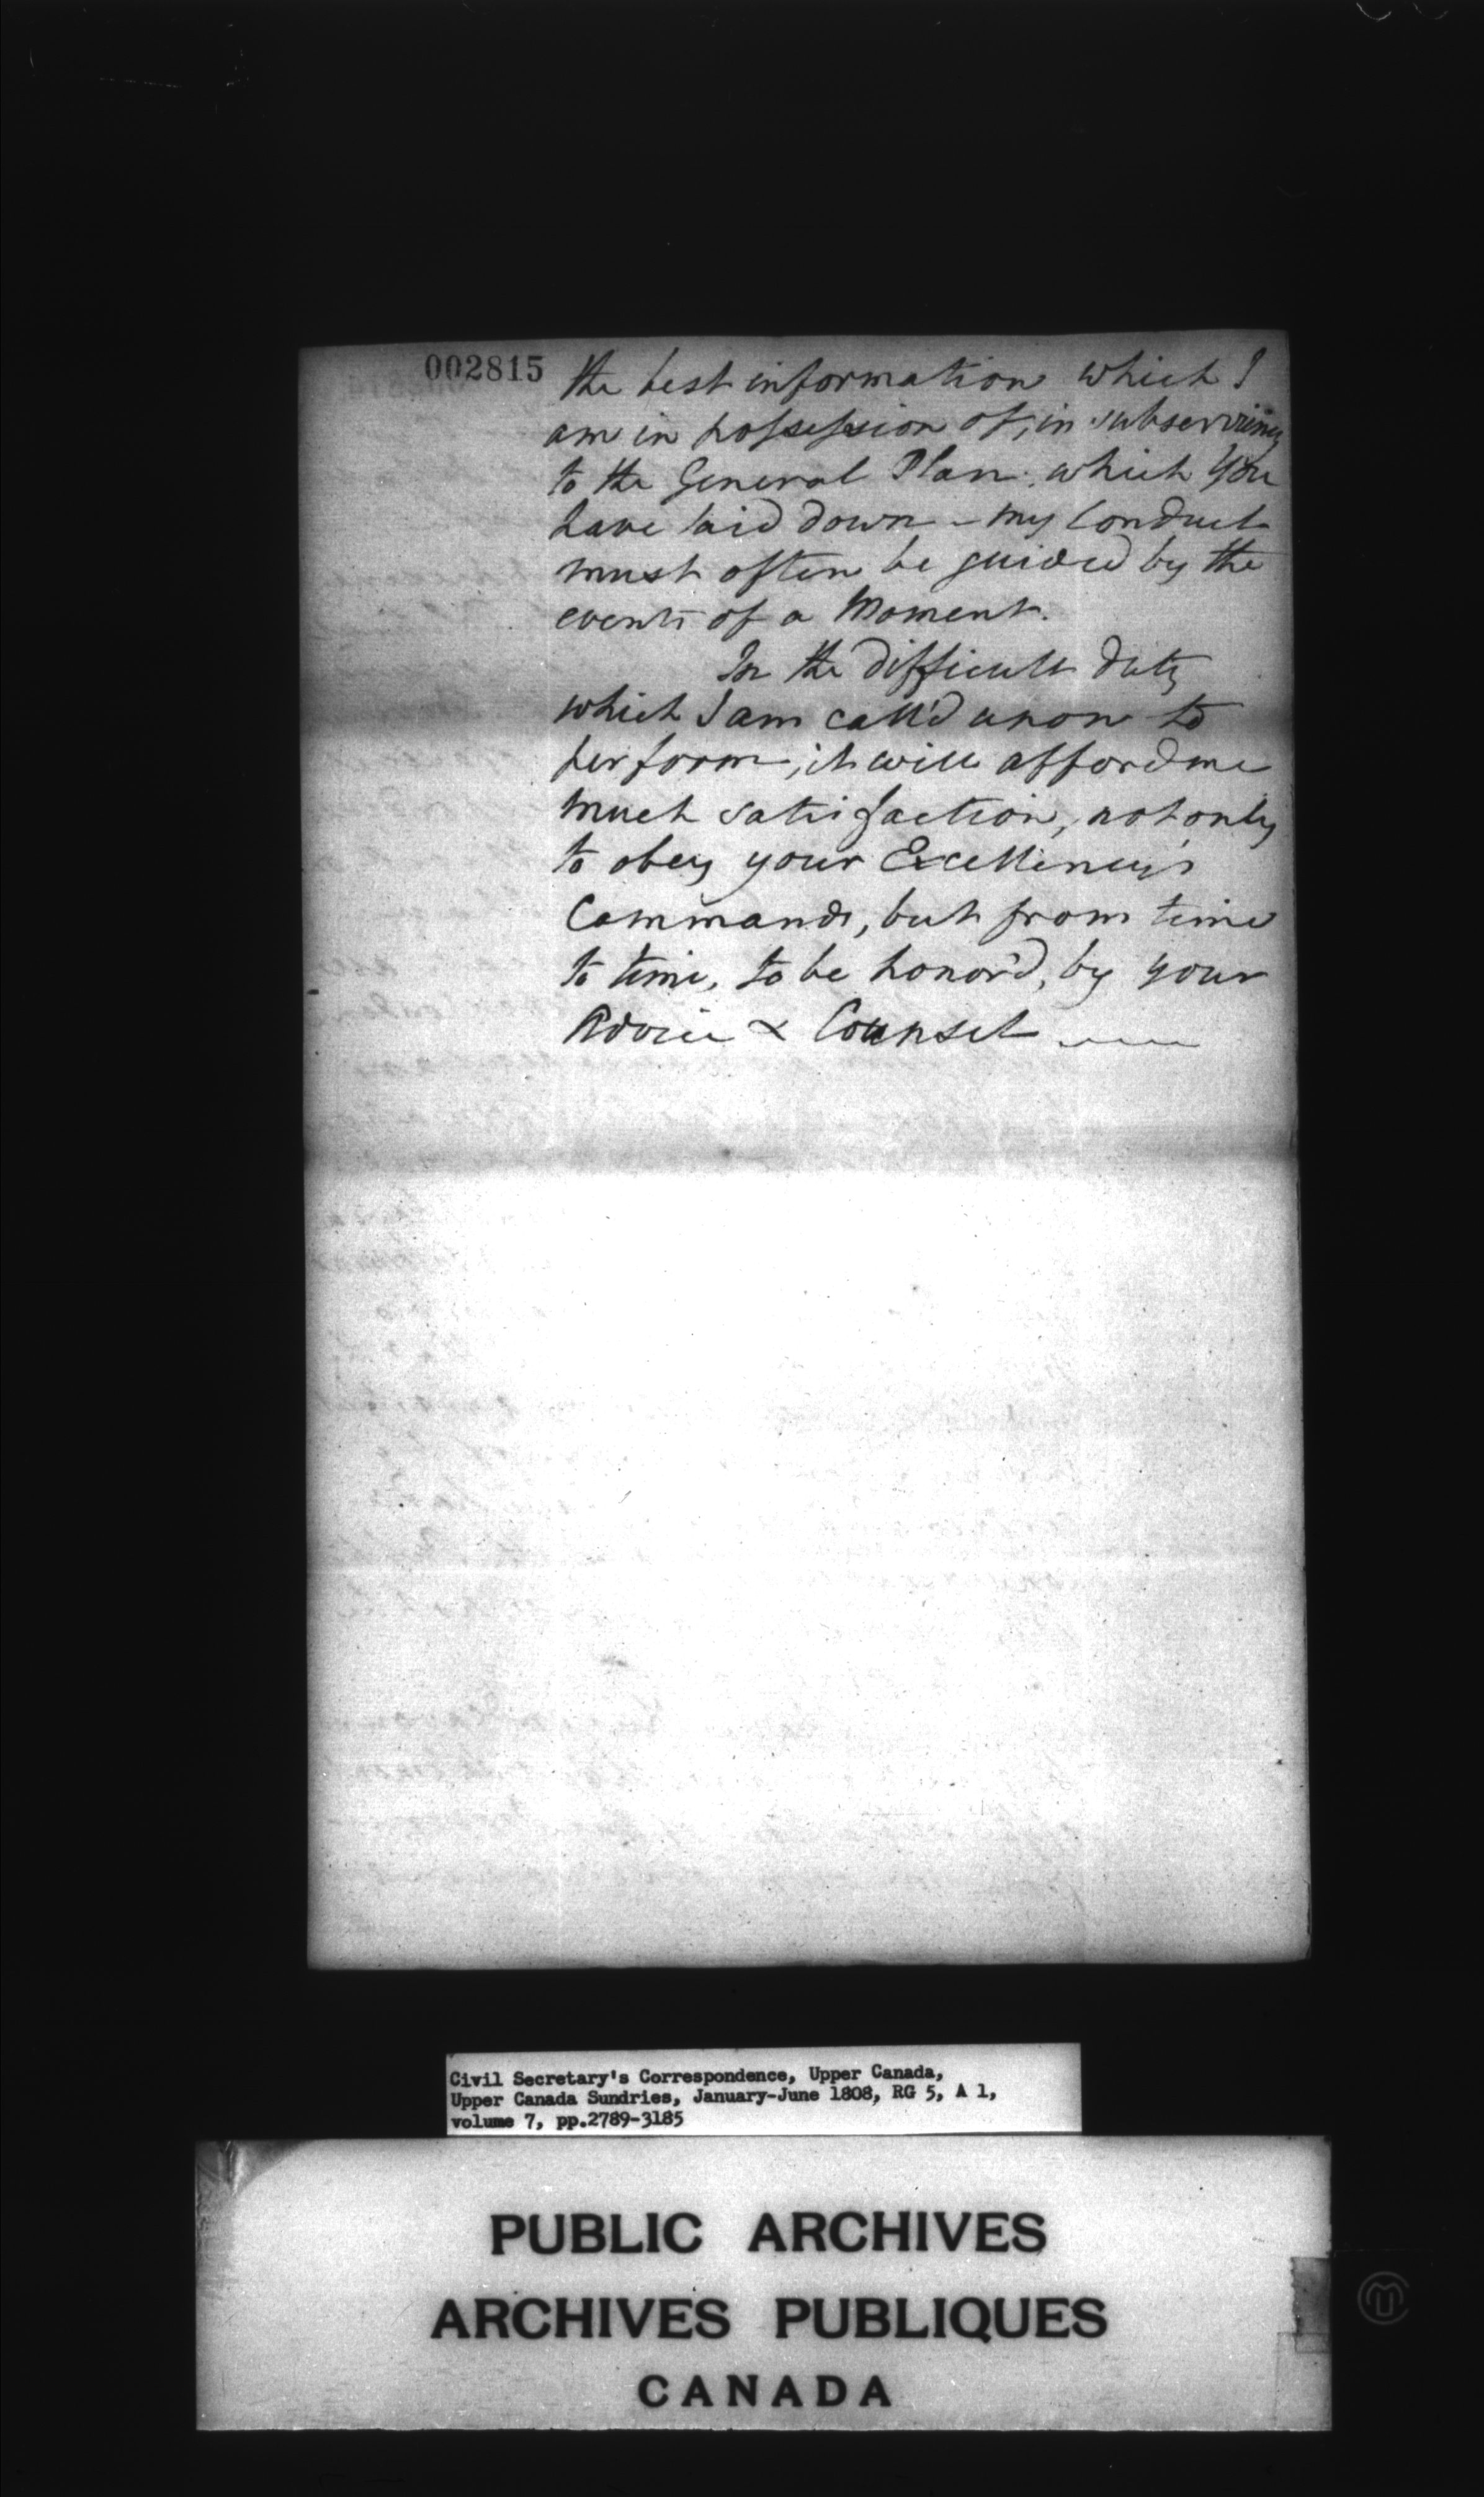 002815
the best information which I
am in possession of, in subserviency
to the General Plan which You
have laid down - my Conduct
must often be guided by the
events of a Moment.
In the difficult duty
which I am call'd upon to
perform, it will afford me
much satisfaction, not only
to obey your Excellency's
Commands, but from time
to time, to be honor'd, by your
Advice & Counsel
Civil Secretary's Correspondence, Upper Canada,
Upper Canada Sundries, January-June 1808, RG 5, A 1,
volume 7, pp.2789-3185
PUBLIC ARCHIVES
ARCHIVES PUBLIQUES
CANADA